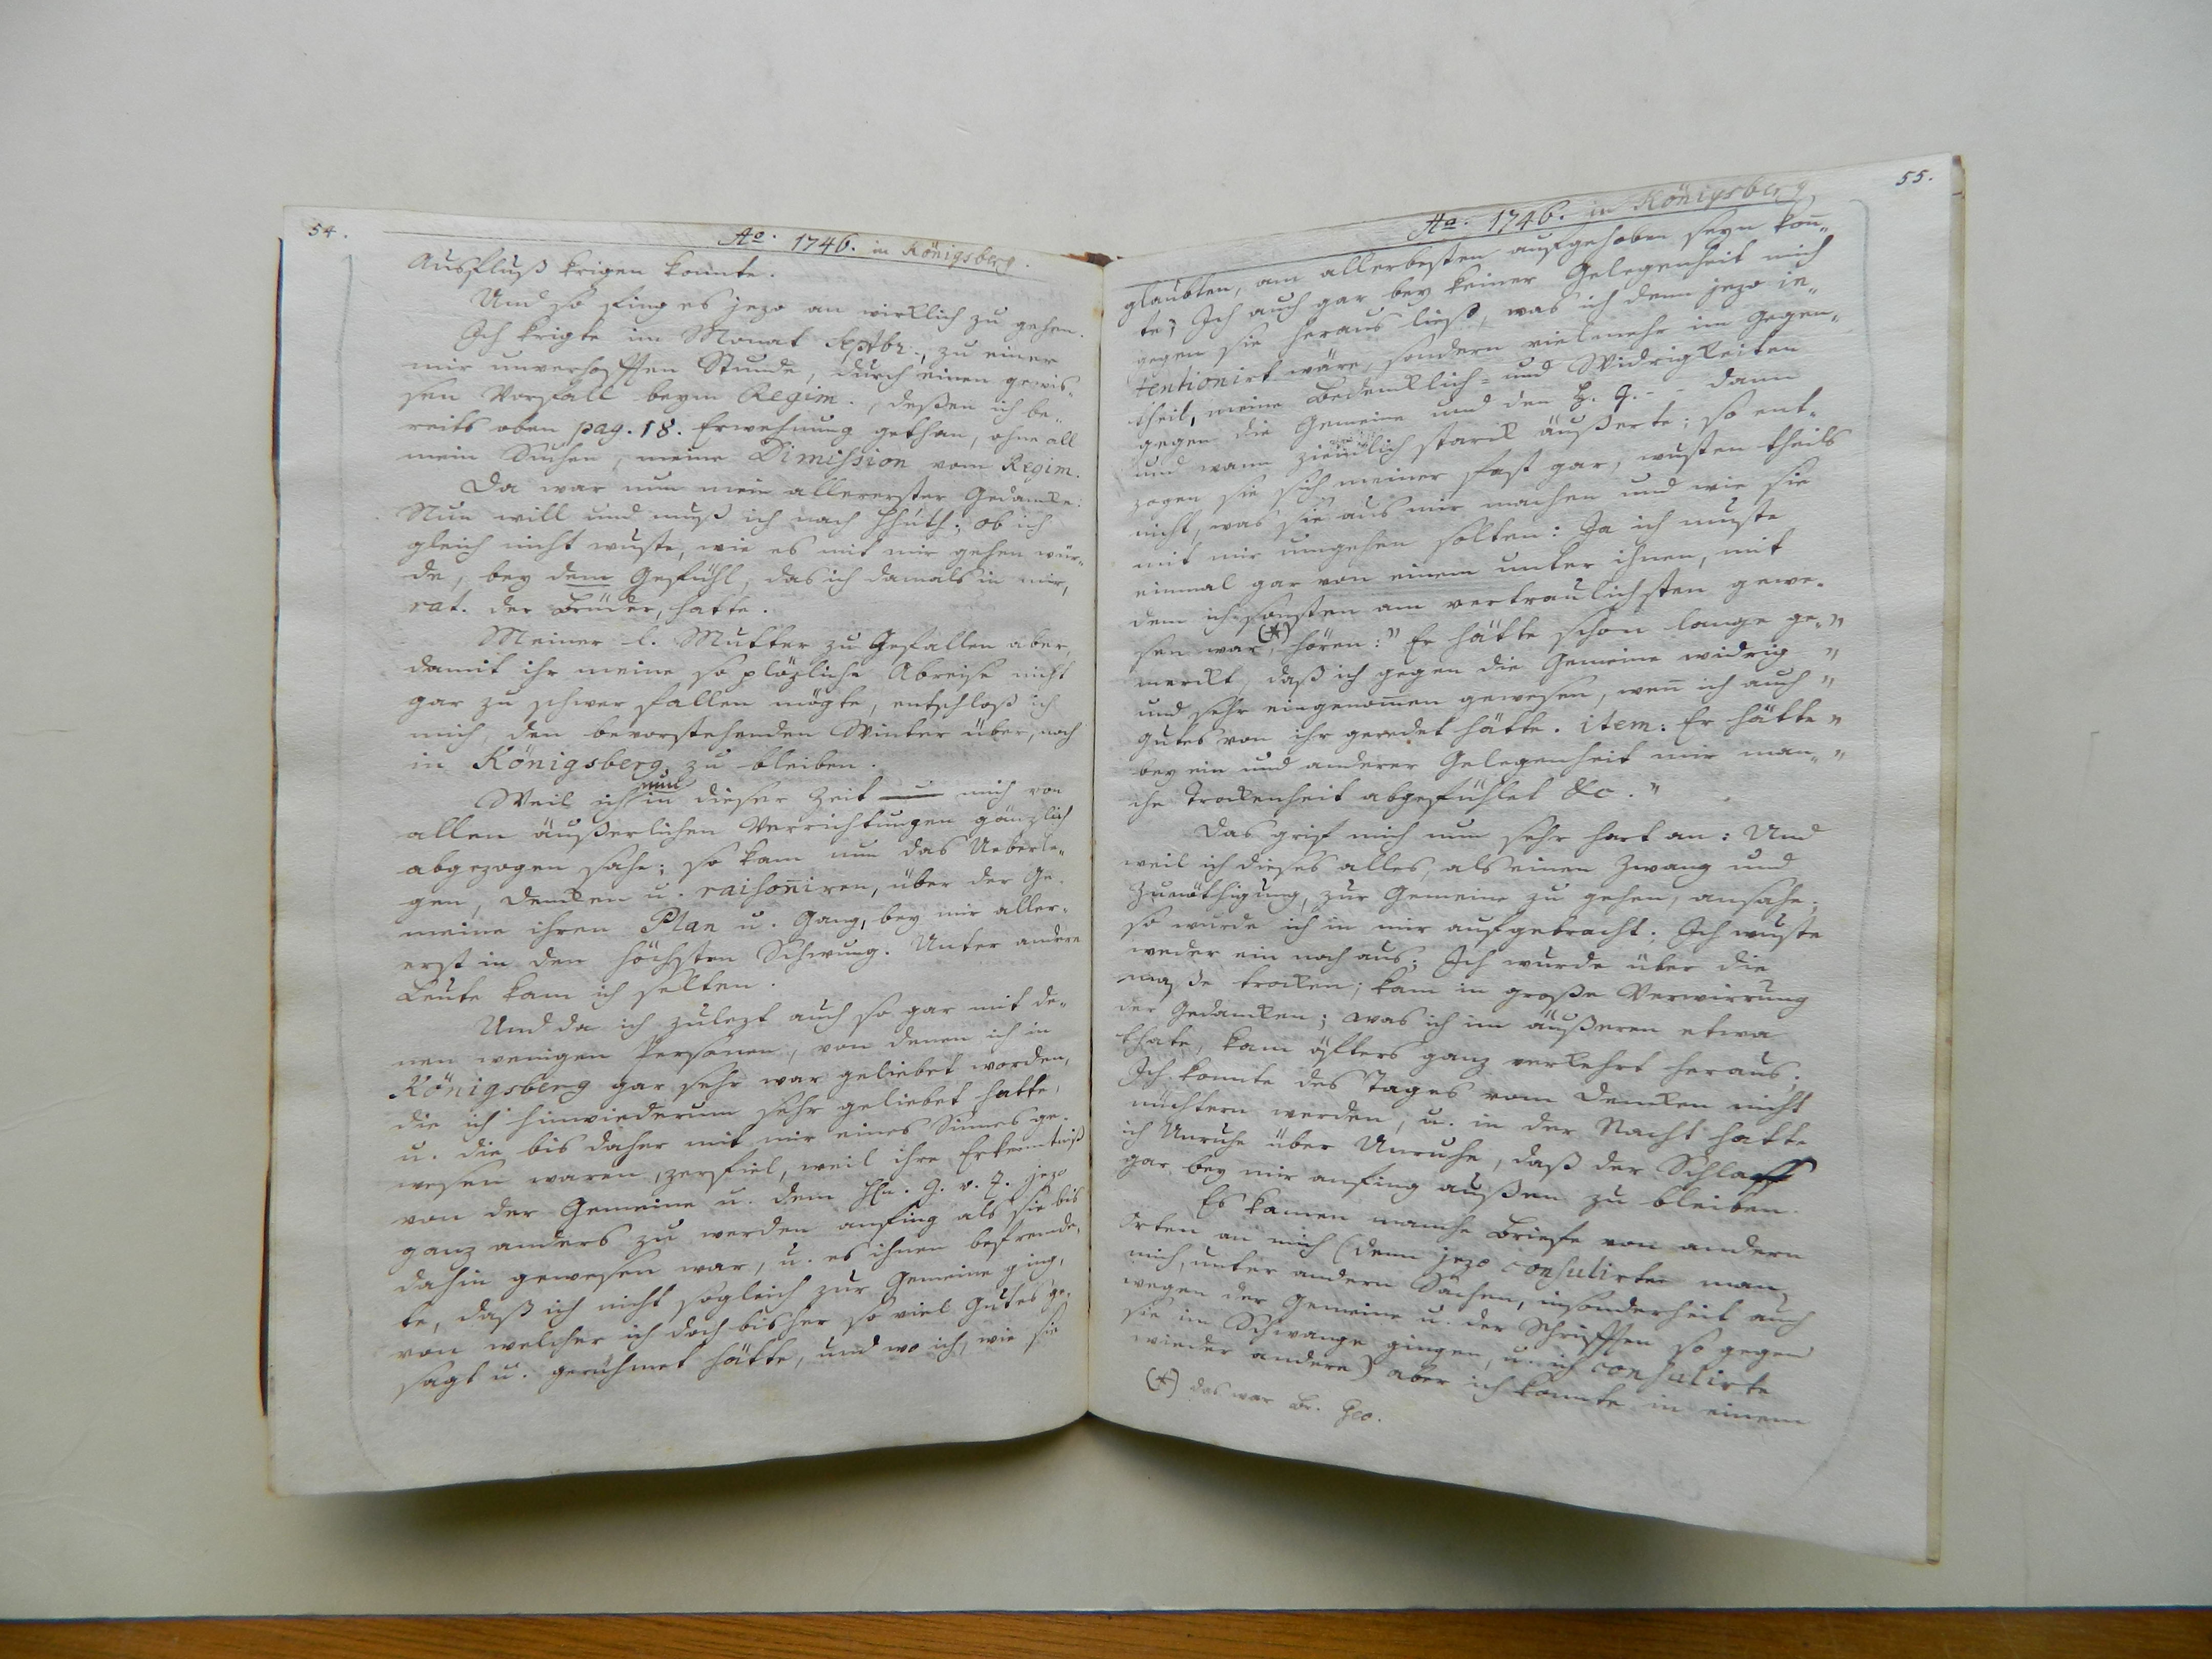 54.
Ao. 1746. in Königsberg.
Ausfluß krigen konnte.
Und so fing es jezo an wirklich zu gehen.
Ich krigte im Monat Septbr., zu einer
mir unverhofften Stunde, durch einen gewis-
sen Vorfall beym Regim., deßen ich be-
reits oben pag. 18. Erwehnung gethan, ohne all
mein Suchen, meine Dimission vom Regim.
Da war nun mein allererster Gedancke:
Nun will und muß ich nach Hhuth; ob ich
gleich nicht wuste, wie es mit mir gehen wür-
de, bey dem Gefühl, das ich damals in mir,
rat. der Brüder, hatte.
Meiner l. Mutter zu Gefallen aber,
damit ihr meine so plözliche Abreise nicht
gar zu schwer fallen mögte, entschloß ich
mich, den bevorstehenden Winter über, noch
in Königsberg zu bleiben.
Weil ich nun in dieser Zeit mich von
allen äußerlichen Verrichtungen gänzlich
abgezogen sahe; so kam nun das Ueberle-
gen, Dencken u. raisoniren, über der Ge-
meine ihren Plan u. Gang, bey mir aller-
erst in den höchsten Schwung. Unter andere
Leute kam ich selten.
Und da ich zulezt auch so gar mit de-
nen wenigen Personen, von denen ich in
Königsberg gar sehr war geliebet worden,
die ich hinwiederum sehr geliebet hatte,
u. die bis daher mit mir eines Sinnes ge-
wesen waren, zerfiel, weil ihre Erkenntniß
von der Gemeine u. dem Hn. G. v. Z. jezo
ganz anders zu werden anfing als sie bis
dahin gewesen war, u. es ihnen befremde-
te, daß ich nicht sogleich zur Gemeine ging,
von welcher ich doch bisher so viel Gutes ge-
sagt u. gerühmet hätte, und wo ich, wie sie
55.
Ao. 1746. in Königsberg
glaubten, am allerbesten aufgehoben seyn kon̄-
te; Ich auch gar bey keiner Gelegenheit mich
gegen sie heraus ließ, was ich denn jezo in-
tentionirt wäre, sondern vielmehr im Gegen-
theil, meine Bedencklich- und Widrigkeiten
gegen die Gemeine und den H. Z. - - dann
und wann ziemlich starck äußerte; so ent-
zogen sie sich meiner fast gar, wusten theils
nicht, was sie aus mir machen und wie sie
mit mir umgehen solten: Ja ich muste
einmal gar von einem unter ihnen, mit
dem ich sonsten am vertraulichsten gewe-
sen war (*), hören: "Er hätte schon lange ge-"
merckt, daß ich gegen die Gemeine widrig "
und sehr eingenom̄en gewesen, wen̄ ich auch "
Gutes von ihr geredet hätte. item: Er hätte "
bey ein und anderer Gelegenheit mir man- "
che Trockenheit abgefühlet &c."
Das grif mich nun sehr hart an: Und
weil ich dieses alles, als einen Zwang und
Zunöthigung, zur Gemeine zu gehen, ansahe;
so wurde ich in mir aufgebracht; Ich wuste
weder ein noch aus; Ich wurde über die
maße trocken; kam in große Verwirrung
der Gedancken; was ich im äußeren etwa
thate, kam öffters ganz verkehrt heraus;
Ich konnte des Tages vom Dencken nicht
nüchtern werden, u. in der Nacht hatte
ich Unruhe über Unruhe, daß der Schlaff
gar bey mir anfing außen zu bleiben.
Es kamen manche Briefe von andern
Orten an mich (denn jezo consulirte man
mich, unter andern Sachen, insonderheit auch
wegen der Gemeine u. der Schrifften so gegen
sie im Schwange gingen, u. ich consulirte
wieder andere) aber ich konnte in einem
(*) das war Br. Geo.